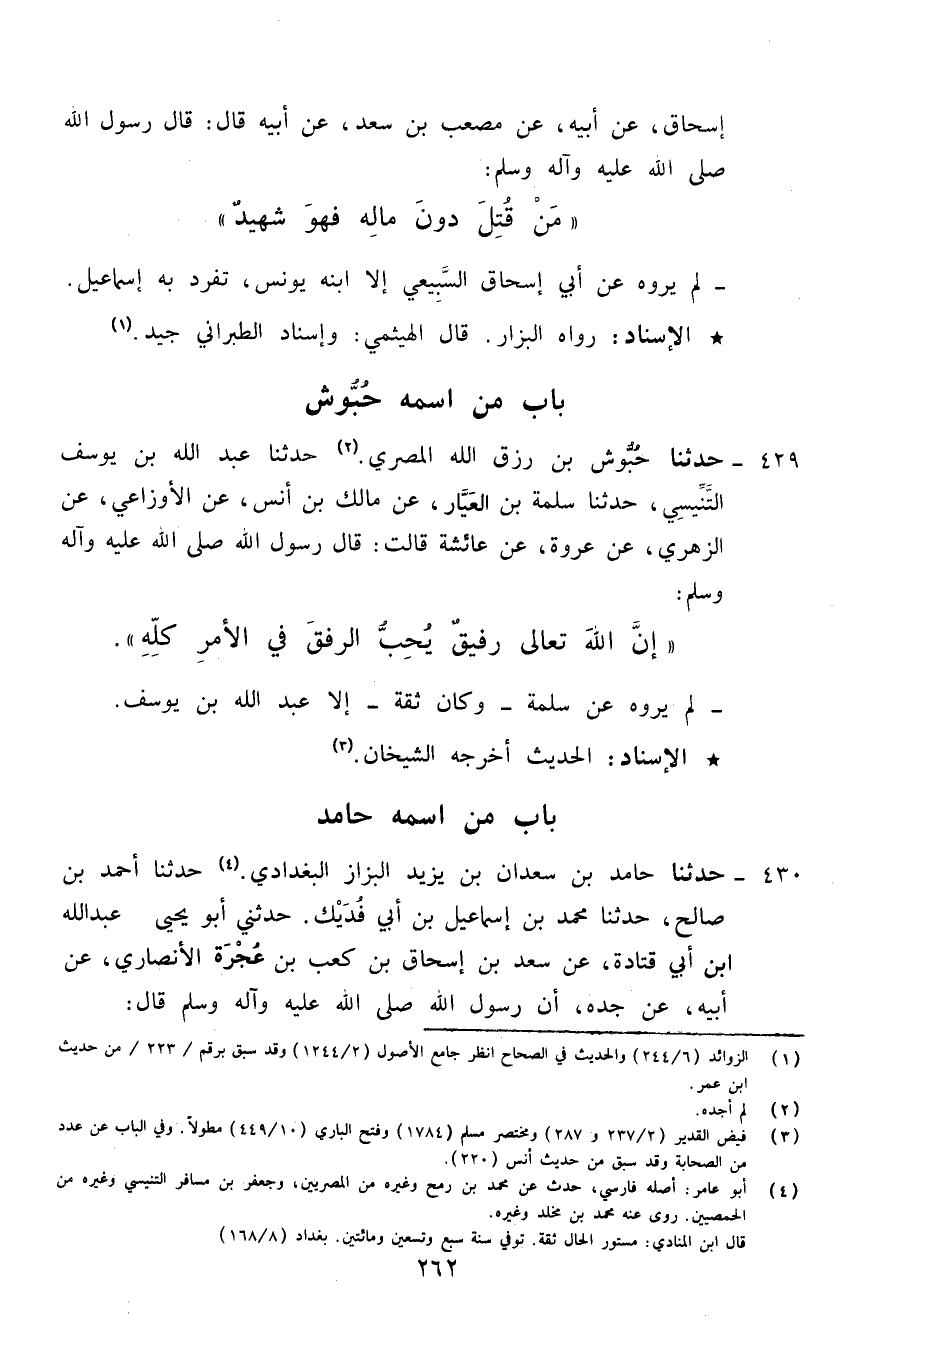 إسحاق، عن أبيه، عن مصعب بن سعد، عن أبيه قال: قال رسول الله
صلى الله عليه وآله وسلم:
« مَنْ قُتِلَ دونَ مالِه فهوَ شهيدٌ »
ـ لم يروه عن أبي إسحاق السَّبِيعي إلا ابنه يونس، تفرد به إسماعيل.
★ الإسناد: رواه البزار. قال الهيثمي: وإسناد الطبراني جيد.(١)
باب من اسمه حُبُّوش
٤٢٩ ـ حدثنا حُبُّوش بن رزق الله المصري.(٢) حدثنا عبد الله بن يوسف
التِّنِّيسِي، حدثنا سلمة بن العَيَّار، عن مالك بن أنس، عن الأوزاعي، عن
الزهري، عن عروة، عن عائشة قالت: قال رسول الله صلى الله عليه وآله
وسلم:
« إنَّ اللهَ تعالى رفيقٌ يُحِبُّ الرفقَ في الأمرِ كلِّهِ ».
ـ لم يروه عن سلمة ـ وكان ثقة ـ إلا عبد الله بن يوسف.
★ الإسناد: الحديث أخرجه الشيخان.(٣)
باب من اسمه حامد
٤٣٠ ـ حدثنا حامد بن سعدان بن يزيد البزاز البغدادي.(٤) حدثنا أحمد بن
صالح، حدثنا محمد بن إسماعيل بن أبي فُدَيْك. حدثني أبو يحيى عبدالله
ابن أبي قتادة، عن سعد بن إسحاق بن كعب بن عُجْرَة الأنصاري، عن
أبيه، عن جده، أن رسول الله صلى الله عليه وآله وسلم قال:
(١) الزوائد (٢٤٤/٦) والحديث في الصحاح انظر جامع الأصول (١٢٤٤/٢) وقد سبق برقم / ٢٢٣ / من حديث
ابن عمر.
(٢) لم أجده.
(٣) فيض القدير (٢٣٧/٢ و ٢٨٧) ومختصر مسلم (١٧٨٤) وفتح الباري (٤٤٩/١٠) مطولاً. وفي الباب عن عدد
من الصحابة وقد سبق من حديث أنس (٢٢٠).
(٤) أبو عامر: أصله فارسي، حدث عن محمد بن رمح وغيره من المصريين، وجعفر بن مسافر التنيسي وغيره من
الحمصيين. روى عنه محمد بن مخلد وغيره.
قال ابن المنادي: مستور الحال ثقة. توفي سنة سبع وتسعين ومائتين. بغداد (١٦٨/٨)
٢٦٢